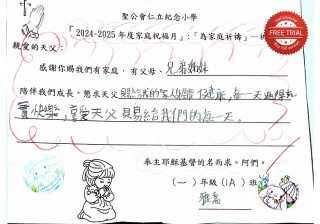 聖公會仁立紀念小學
「2024-2025年度家庭祝福月」:「為家庭祈禱」
FREE TRIAL
親愛的天父:
感謝你賜我們有家庭,有父母、兄弟姊妹
陪伴我們成長。懇求天父賜給我的家人身體健康,每一天過得充
實快樂,享受天父賜給我們的每一天。
奉主耶穌基督的名而求。阿們。
(一)年級(1A)班